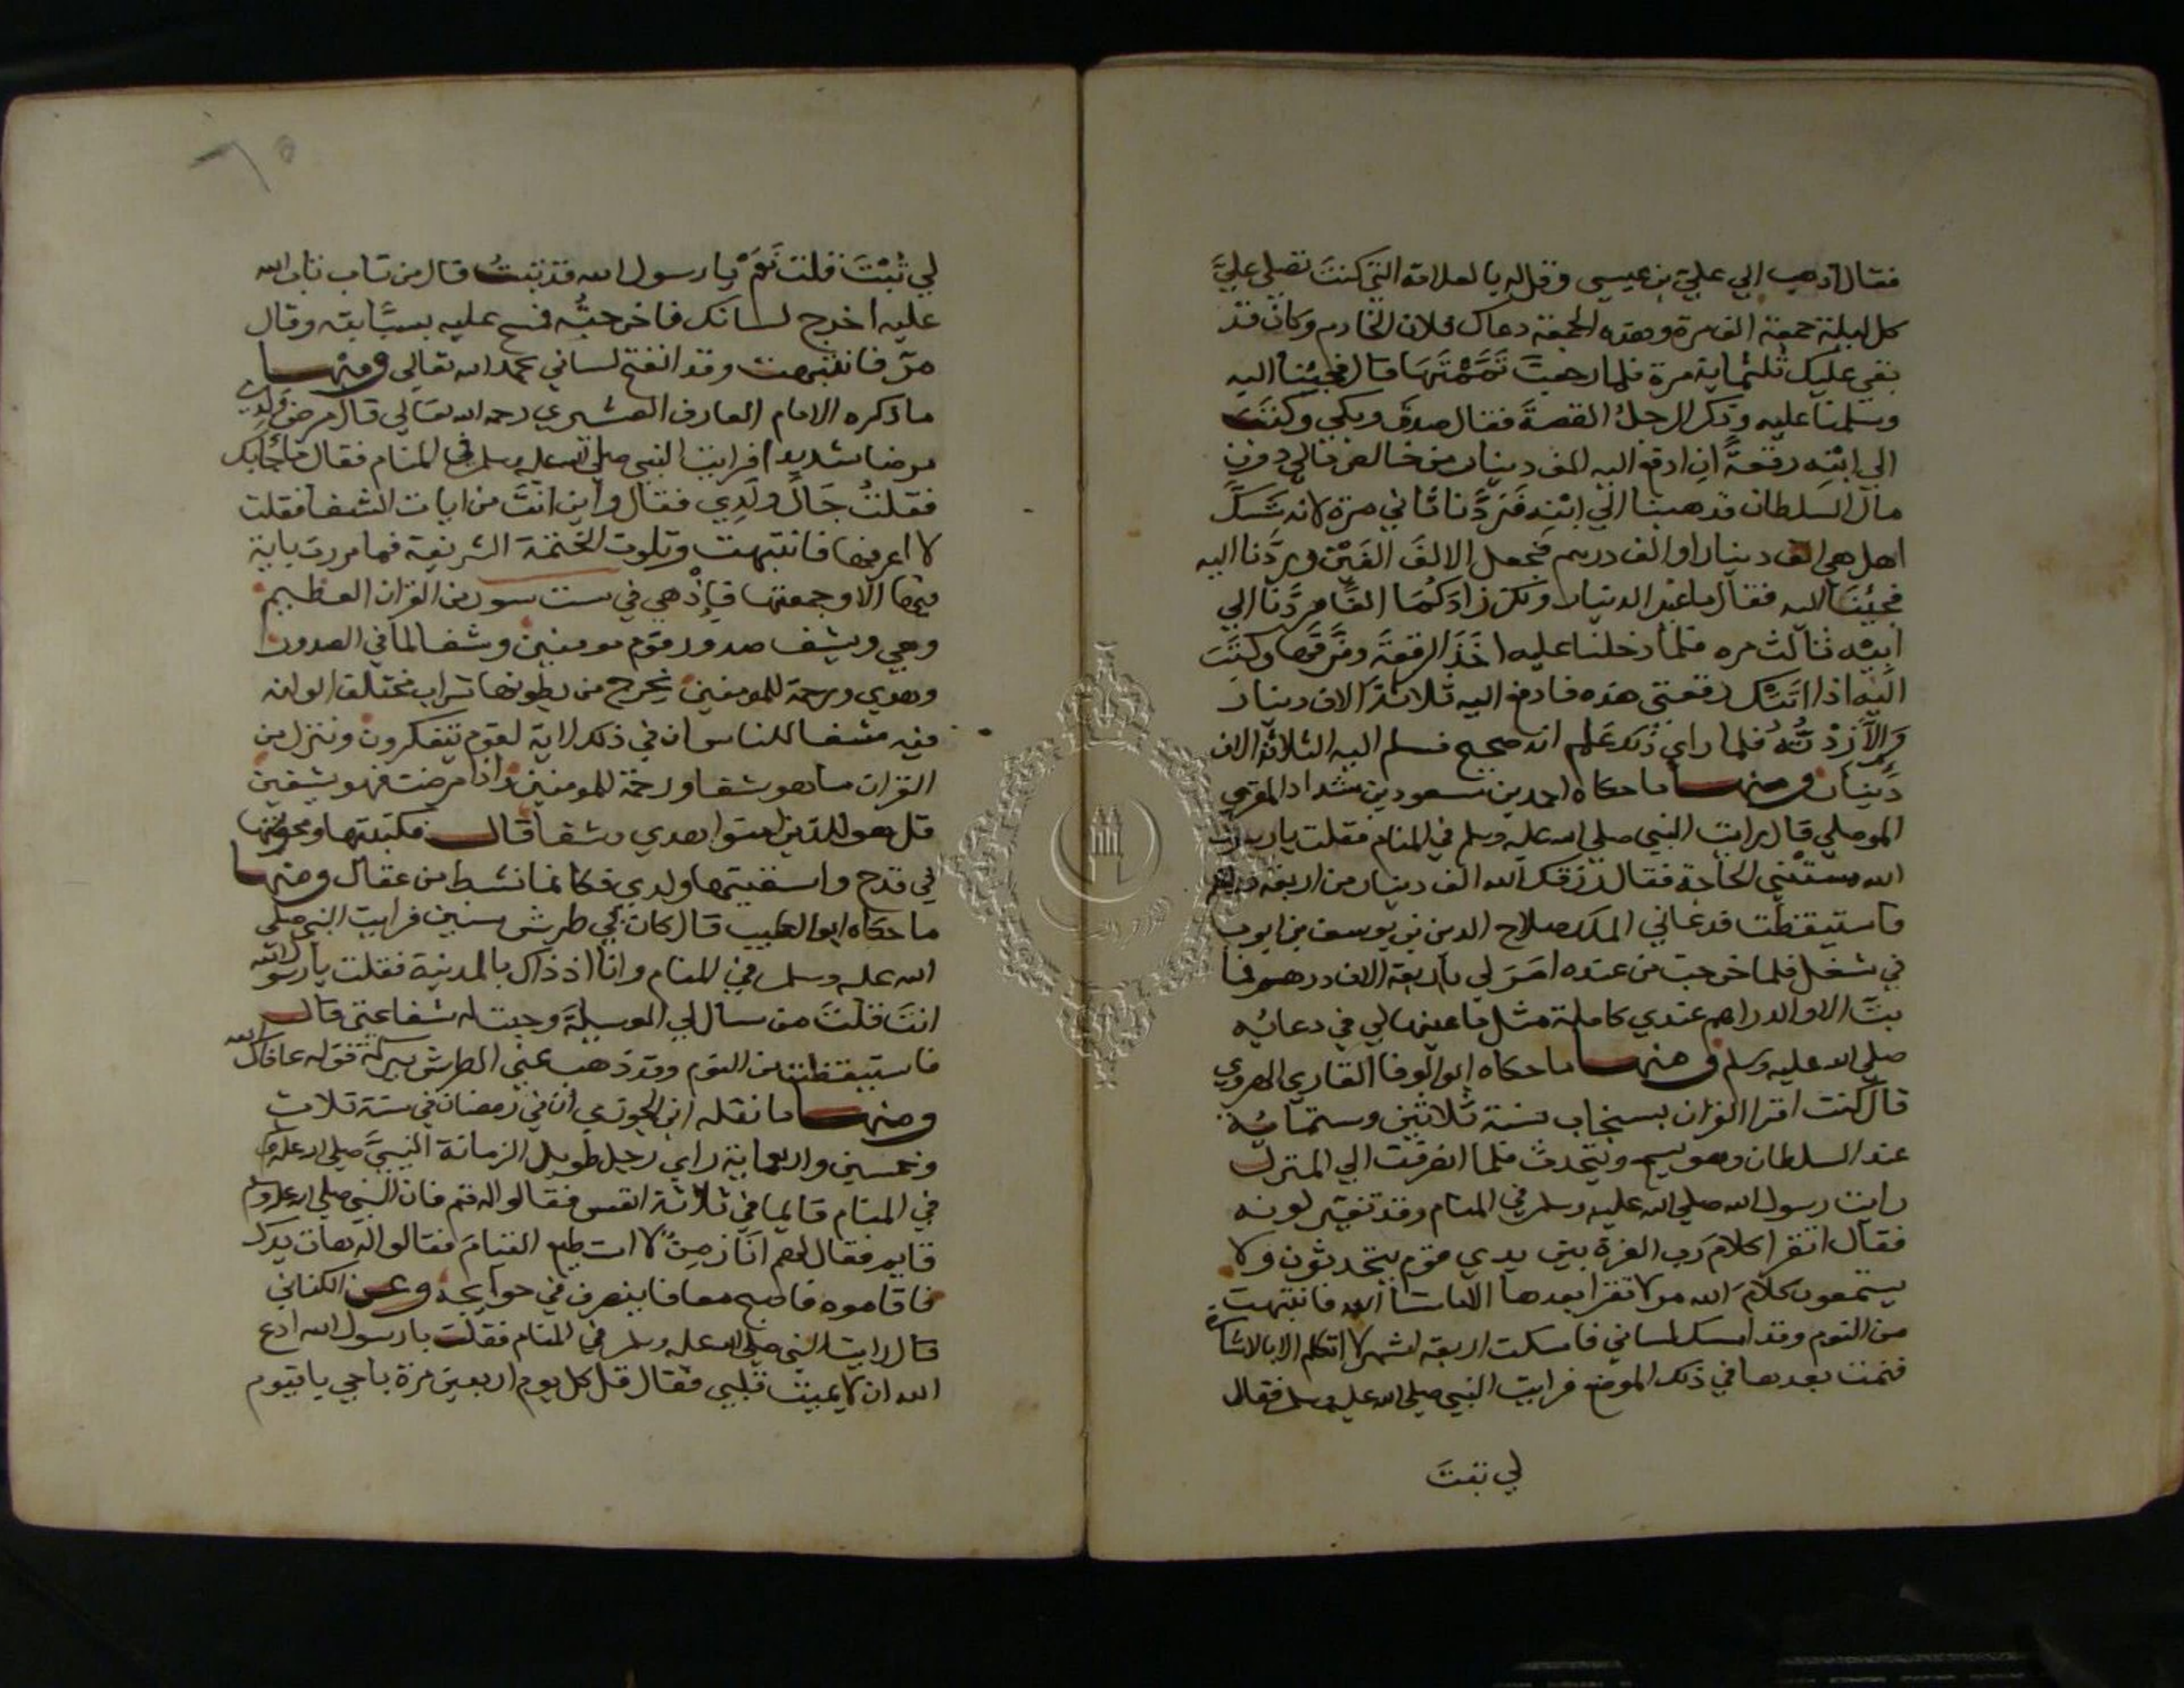 فقال اذهب الي علي بن عيسي وقل له بالعلامة التي كنت تصلي علي
كل ليلة جمعة الف مرة وهذه الجمعة دعاك فلان الخادم وكان قد
بقي عليك ثلثماية مرة فلما رجعت تممتها قال فجئنا اليه
وسلمنا عليه وذكر الرجل القصة فقال صدق وبكي وكتب
الي ابنه رقعة ان ادفع اليه الف دينار من خالص مالي دون
مال السلطان فذهبنا الي ابنه فردنا ثاني مرة لانه شك
اهل هي الف دينار او الف درهم فجعل الالف الفين وردنا اليه
فجئنا اليه فقال ما غير الدينار ولكن زادكما الفا فردنا الي
ابنه ثالث مره فلما دخلنا عليه اخذ الرقعة ومزقها وكتب
اليه اذا اتتك رقعتي هذه فادفع اليه ثلاثة الاف دينار
والا زدته فلما راي ذلك علم انه صحيح فسلم اليه الثلاثة الاف
دينار ومنها ما حكاه احمد بن مسعود بن شداد المقري
الموصلي قال رايت النبي صلي الله عليه وسلم في المنام فقلت يا رسول
الله مستني الحاجة فقال رزقك الله الف دينار من اربعة دراهم
فاستيقظت فدعاني الملك صلاح الدين بن يوسف بن ايوب
في شغل فلما خرجت من عنده امر لي باربعة الاف درهم فما
بت الا والدراهم عندي كاملة مثل ما عينها لي في دعايه
صلي الله عليه وسلم ومنها ما حكاه ابو الوفا القاري الهروي
قال كنت اقرا القران بسنجاب سنة ثلاثين وستمائه
عند السلطان وهو يسمع ويتحدث فلما انصرفت الي المنزل
رايت رسول الله صلي الله عليه وسلم في المنام وقد تغير لونه
فقال اتقرا كلام رب العزة بين يدي قوم يتحدثون ولا
يستمعون كلام الله مر لا تقرا بعدها الا ما شا الله فانتبهت
من النوم وقد امسك لساني فامسكت اربعة اشهر لا اتكلم الا بالاشارة
فنمت بعدها في ذلك الموضع فرايت النبي صلي الله عليه وسلم فقال
لي تبت
لي تبت فقلت نعم يا رسول الله قد تبت قال من تاب تاب الله
عليه اخرج لسانك فاخرجته فمسح عليه بسبابته وقال
مر فانتبهت وقد انفتح لساني بحمد الله تعالي ومنها
ما ذكره الامام العارف القشيري رحمه الله تعالي قال مرض ولدي
مرضا شديدا فرايت النبي صلي الله عليه وسلم في المنام فقال ما بك
فقلت حال ولدي فقال واين انت من ايات الشفا فقلت
لا اعرفها فانتبهت وتلوت الختمة الشريفة فما مررت باية
فيها الا وجمعتها فاذ هي في ست سور من القران العظيم
وهي ويشف صدور قوم مومنين وشفا لما في الصدور
وهدي ورحمة للمومنين يخرج من بطونها شراب مختلف الوانه
فيه شفا للناس ان في ذلك لاية لقوم يتفكرون وننزل من
القران ما هو شفا ورحمة للمومنين واذا مرضت فهو يشفين
قل هو للذين امنوا هدي وشفا قال فكتبتها ومحوتها
في قدح واسقيتها ولدي فكانما نشط من عقال ومنها
ما حكاه ابو الطيب قال كان بي طرش سنين فرايت النبي صلي
الله عليه وسلم في المنام وانا اذ ذاك بالمدينة فقلت يا رسول الله
انت قلت من سال لي الوسيلة وجبت له شفاعتي قال
فاستيقظت من النوم وقد ذهب عني الطرش ببركة قوله عافاك الله
ومنها ما نقله ابن الجوزي ان في رمضان في سنة ثلاث
وخمسين واربعماية راي رجل طويل الزمانة النبي صلي الله عليه وسلم
في المنام قايما في ثلاثة انفس فقالوا له قم فان النبي صلي الله عليه وسلم
قايم فقال لهم انا زمن لا استطيع القيام فقالوا له هات يدك
فاقاموه فاصبح معافا ينصرف في حوايجه وعن الكتاني
قال رايت النبي صلي الله عليه وسلم في المنام فقلت يا رسول الله ادع
الله ان لا يميت قلبي فقال قل كل يوم اربعين مرة يا حي يا قيوم